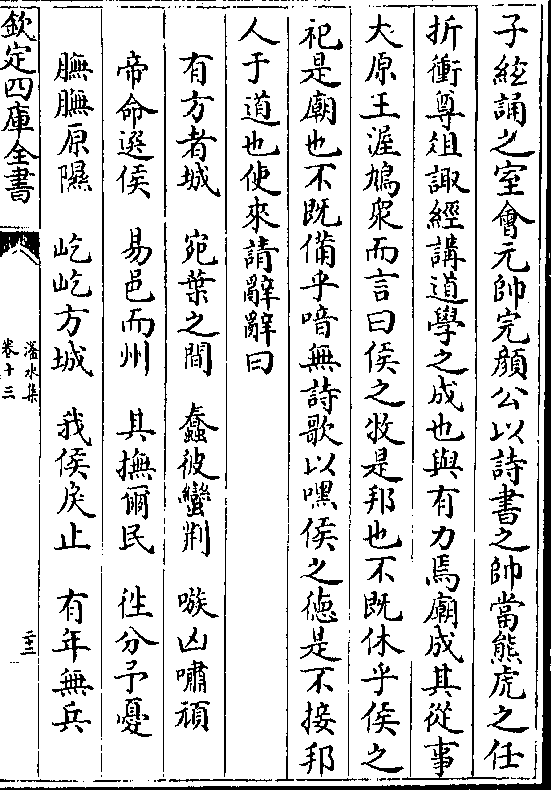 子絃誦之室會元帥完顔公以詩書之帥當熊虎之任
折衝尊俎諏經講道學之成也與有力焉廟成其從事
大原王渥鳩衆而言曰侯之牧是邦也不既休乎侯之
祀是廟也不既備乎喑無詩歌以嘿侯之徳是不接邦
人于道也使來請辭辭曰
有方者城　宛葉之間　蠢彼蠻荆　嗾凶嘯頑
帝命選侯　易邑而州　其撫爾民　徃分予憂
膴膴原隰　屹屹方城　我侯戾止　有年無兵
欽定四庫全書
滏水集
卷十三
二十三